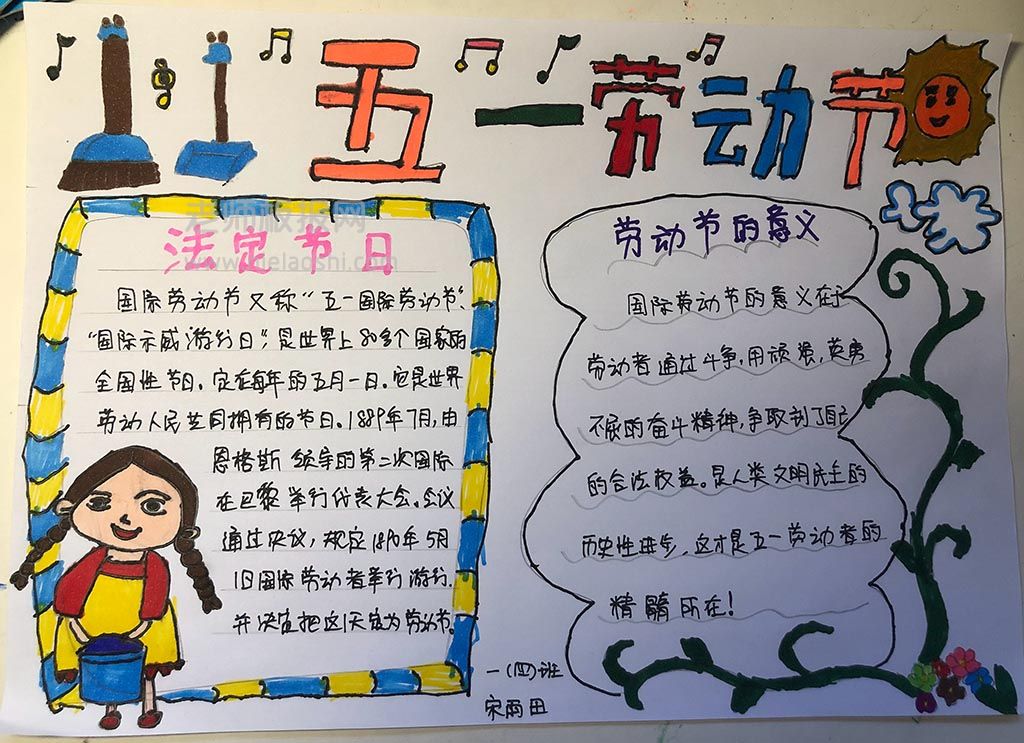 五一劳动节
老师板报网
法定节日
国际劳动节又称“五一国际劳动节”、
“国际示威游行日”，是世界上80多个国家的
全国性节日。定在每年的五月一日。它是世界
劳动人民共同拥有的节日。1889年7月，由
恩格斯领导的第二次国际
在巴黎举行代表大会。会议
通过决议，规定1890年5月
1日国际劳动者举行游行，
并决定把这1天定为劳动节。
劳动节的意义
国际劳动节的意义在于
劳动者通过斗争，用顽强，英勇
不屈的奋斗精神，争取到了自己
的合法权益。是人类文明民主的
历史性进步，这才是五一劳动者的
精髓所在！
一（四）班
宋雨田